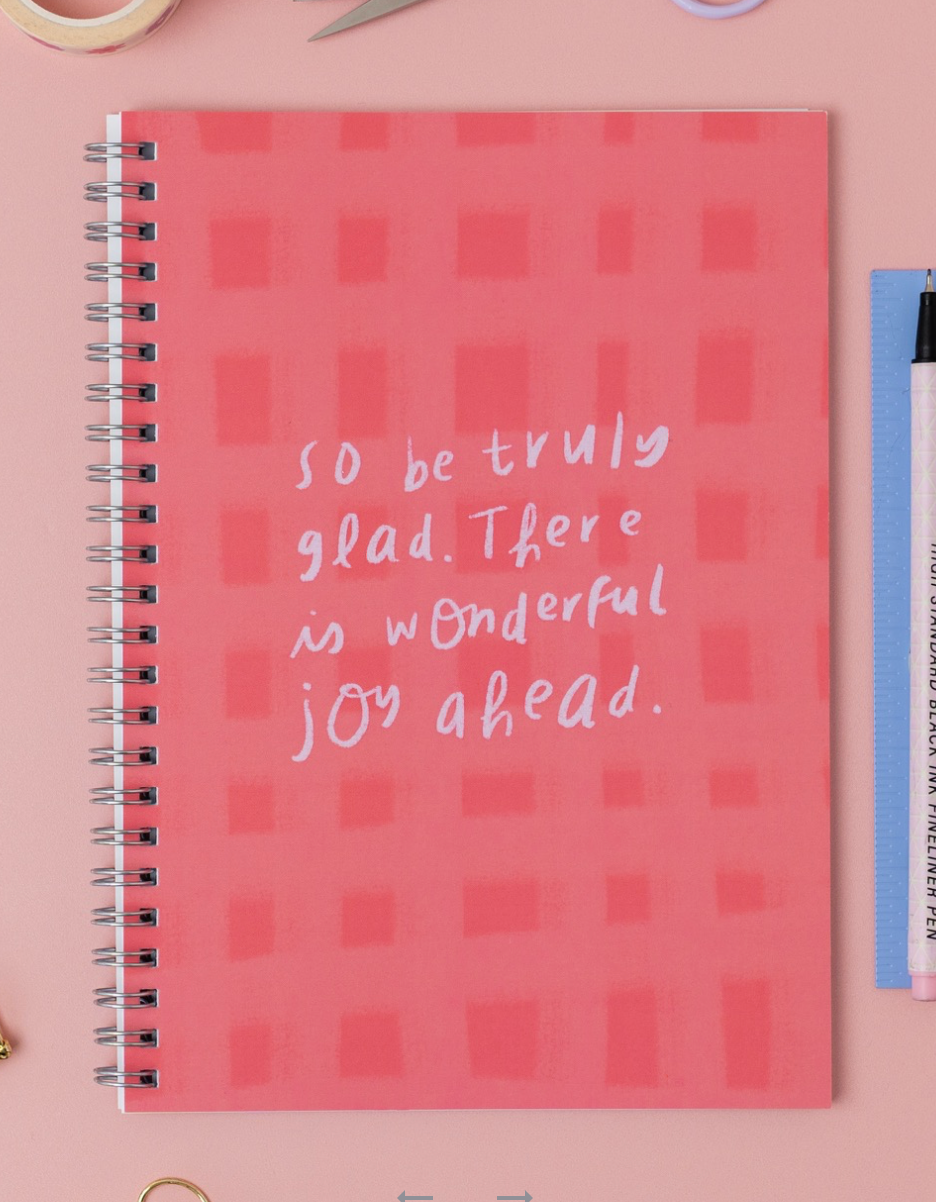 so be truly
glad. There
is wonderful
joy ahead.
HIGH STANDARD BLACK INK FINELINER PEN